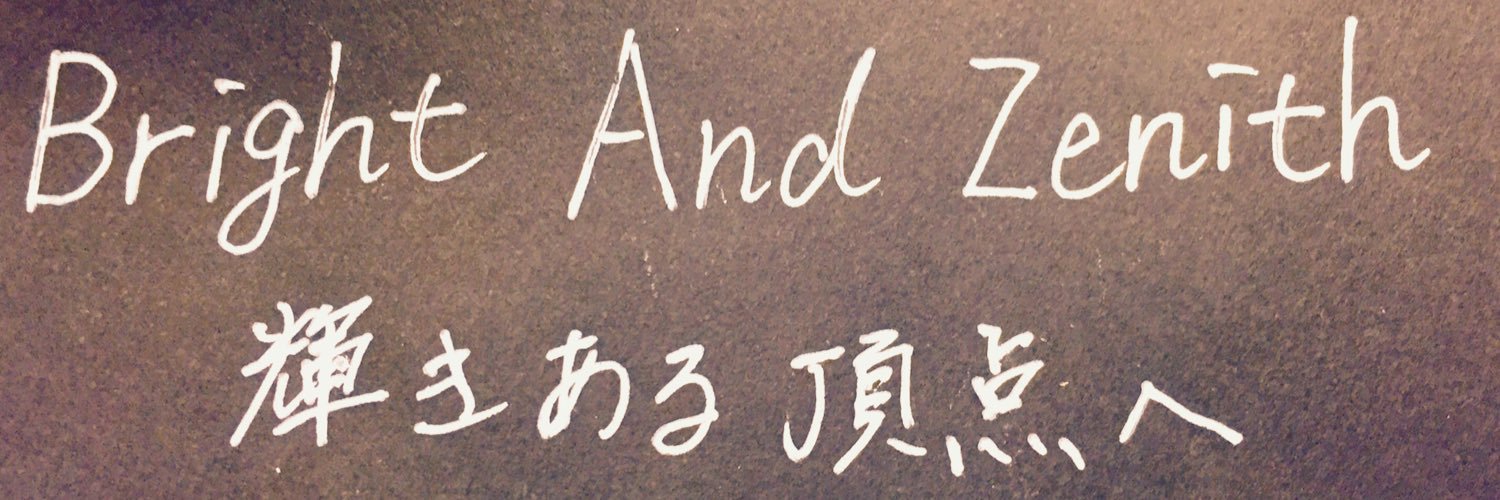 Bright And Zenith
輝きある頂点へ